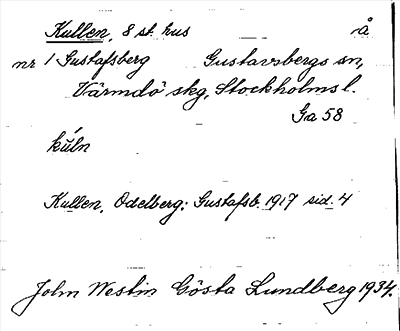 Kullen, 8 st. hus å
nr 1 Gustafsberg Gustavsbergs sn,
Värmdö skg, Stockholms l.
Ga 58
kúln
Kullen, Odelberg: Gustafsb. 1917 sid. 4
John Westin Gösta Lundberg 1934.